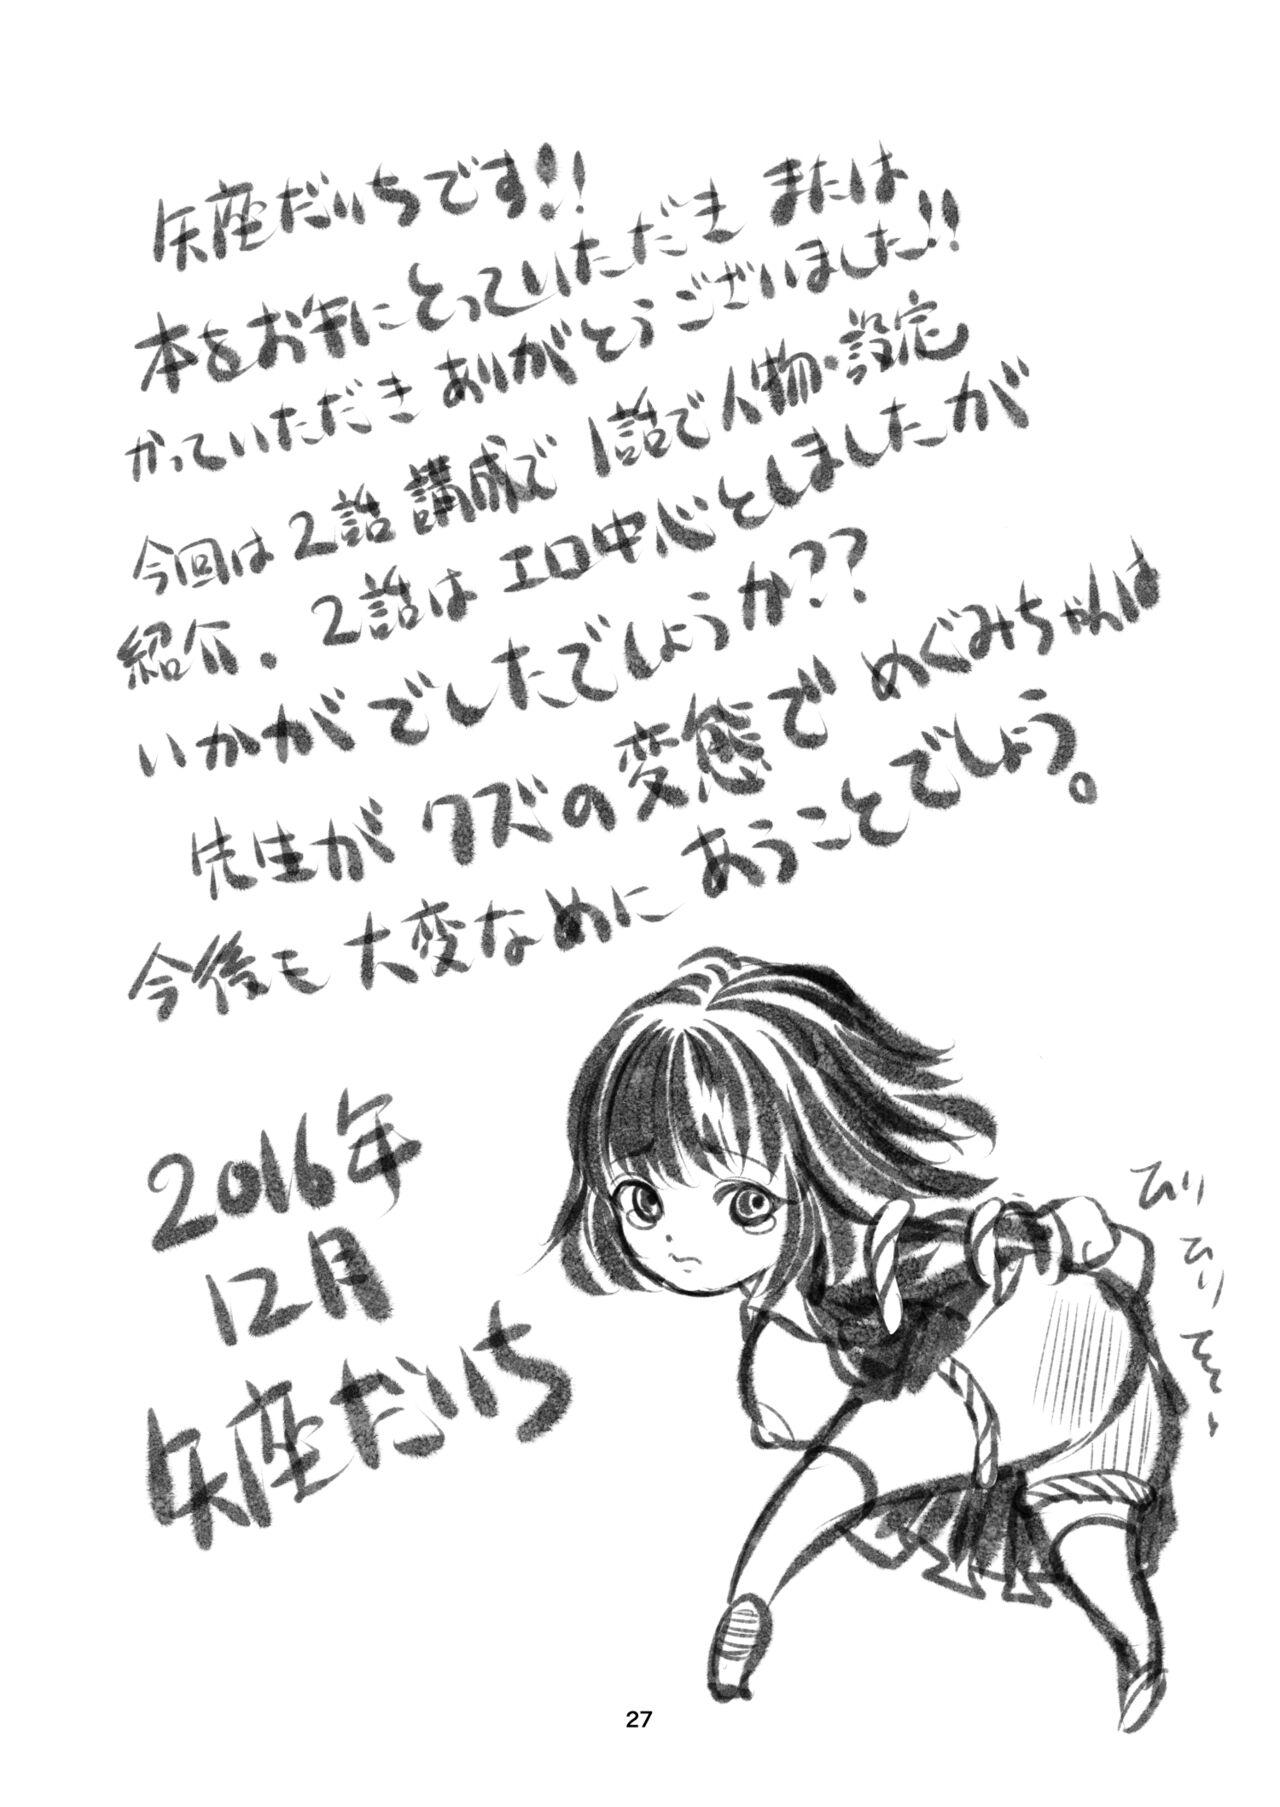 矢座だいちです!!
本をお手にとっていただき または
かっていただき ありがとうございました!!
今回は2話 講成で 1話で人物・設定
紹介. 2話は エロ中心としましたが
いかがでしたでしょうか??
先生が クズの変態で めぐみちゃんは
今後も 大変なめに あうことでしょう。
2016年
12月
矢座だいち
27